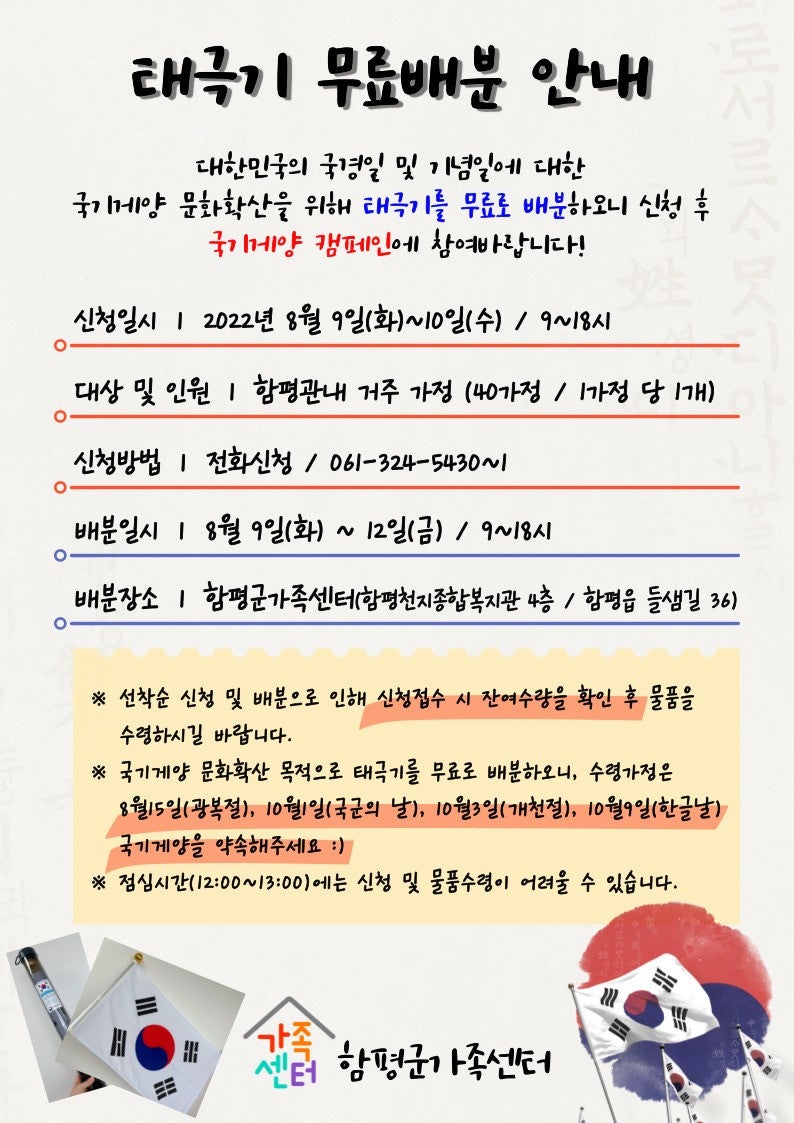 태극기 무료배분 안내
대한민국의 국경일 및 기념일에 대한
국기게양 문화확산을 위해 태극기를 무료로 배분하오니 신청 후
국기게양 캠페인에 참여바랍니다!
신청일시 | 2022년 8월 9일(화)~10일(수) / 9~18시
대상 및 인원 | 함평관내 거주 가정 (40가정 / 1가정 당 1개)
신청방법 | 전화신청 / 061-324-5430~1
배분일시 | 8월 9일(화) ~ 12일(금) / 9~18시
배분장소 | 함평군가족센터(함평천지종합복지관 4층 / 함평읍 들샘길 36)
※ 선착순 신청 및 배분으로 인해 신청접수 시 잔여수량을 확인 후 물품을
수령하시길 바랍니다.
※ 국기게양 문화확산 목적으로 태극기를 무료로 배분하오니, 수령가정은
8월15일(광복절), 10월1일(국군의 날), 10월3일(개천절), 10월9일(한글날)
국기게양을 약속해주세요 :)
※ 점심시간(12:00~13:00)에는 신청 및 물품수령이 어려울 수 있습니다.
가족
센터
함평군가족센터